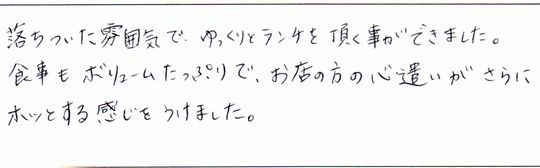 落ちついた雰囲気で、ゆっくりとランチを頂く事ができました。
食事もボリュームたっぷりで、お店の方の心遣いがさらに
ホッとする感じをうけました。